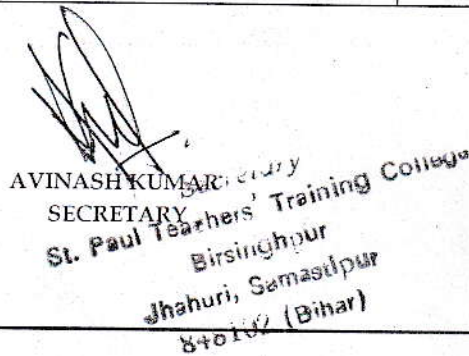 AVINASH KUMAR
SECRETARY
Secretary
St. Paul Teachers' Training College
Birsinghpur
Jhahuri, Samastipur
(Bihar)